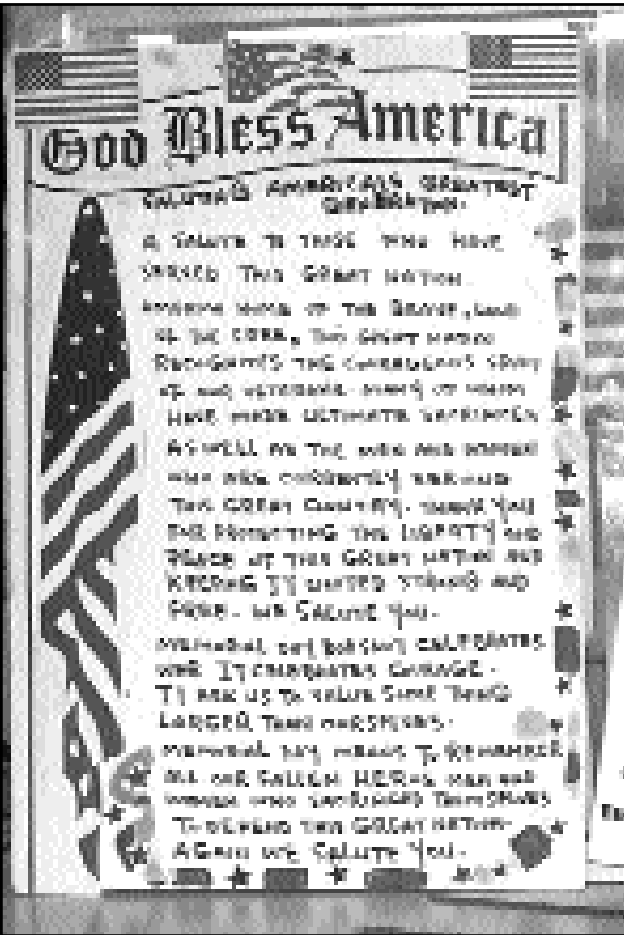 God Bless America
SALUTING AMERICA'S GREATEST
GENERATION.
A SALUTE TO THOSE WHO HAVE
SERVED THIS GREAT NATION
AMERICA HOME OF THE BRAVE, LAND
OF THE FREE, THIS GREAT NATION
RECOGNIZES THE COURAGEOUS SPIRIT
OF OUR VETERANS. MANY OF WHOM
HAVE MADE ULTIMATE SACRIFICES
AS WELL AS THE MEN AND WOMEN
WHO ARE CURRENTLY SERVING
THIS GREAT COUNTRY. THANK YOU
FOR PROTECTING THE LIBERTY AND
PEACE OF THIS GREAT NATION AND
KEEPING IT UNITED STRONG AND
FREE. WE SALUTE YOU.
MEMORIAL DAY DOESN'T CELEBRATES
WAR IT CELEBRATES COURAGE.
IT ASK US TO VALUE SOME THING
LARGER THAN OURSELVES.
MEMORIAL DAY MEANS TO REMEMBER
ALL OUR FALLEN HEROS MEN AND
WOMEN WHO SACRIFICED THEMSELVES
TO DEFEND THIS GREAT NATION
AGAIN WE SALUTE YOU.